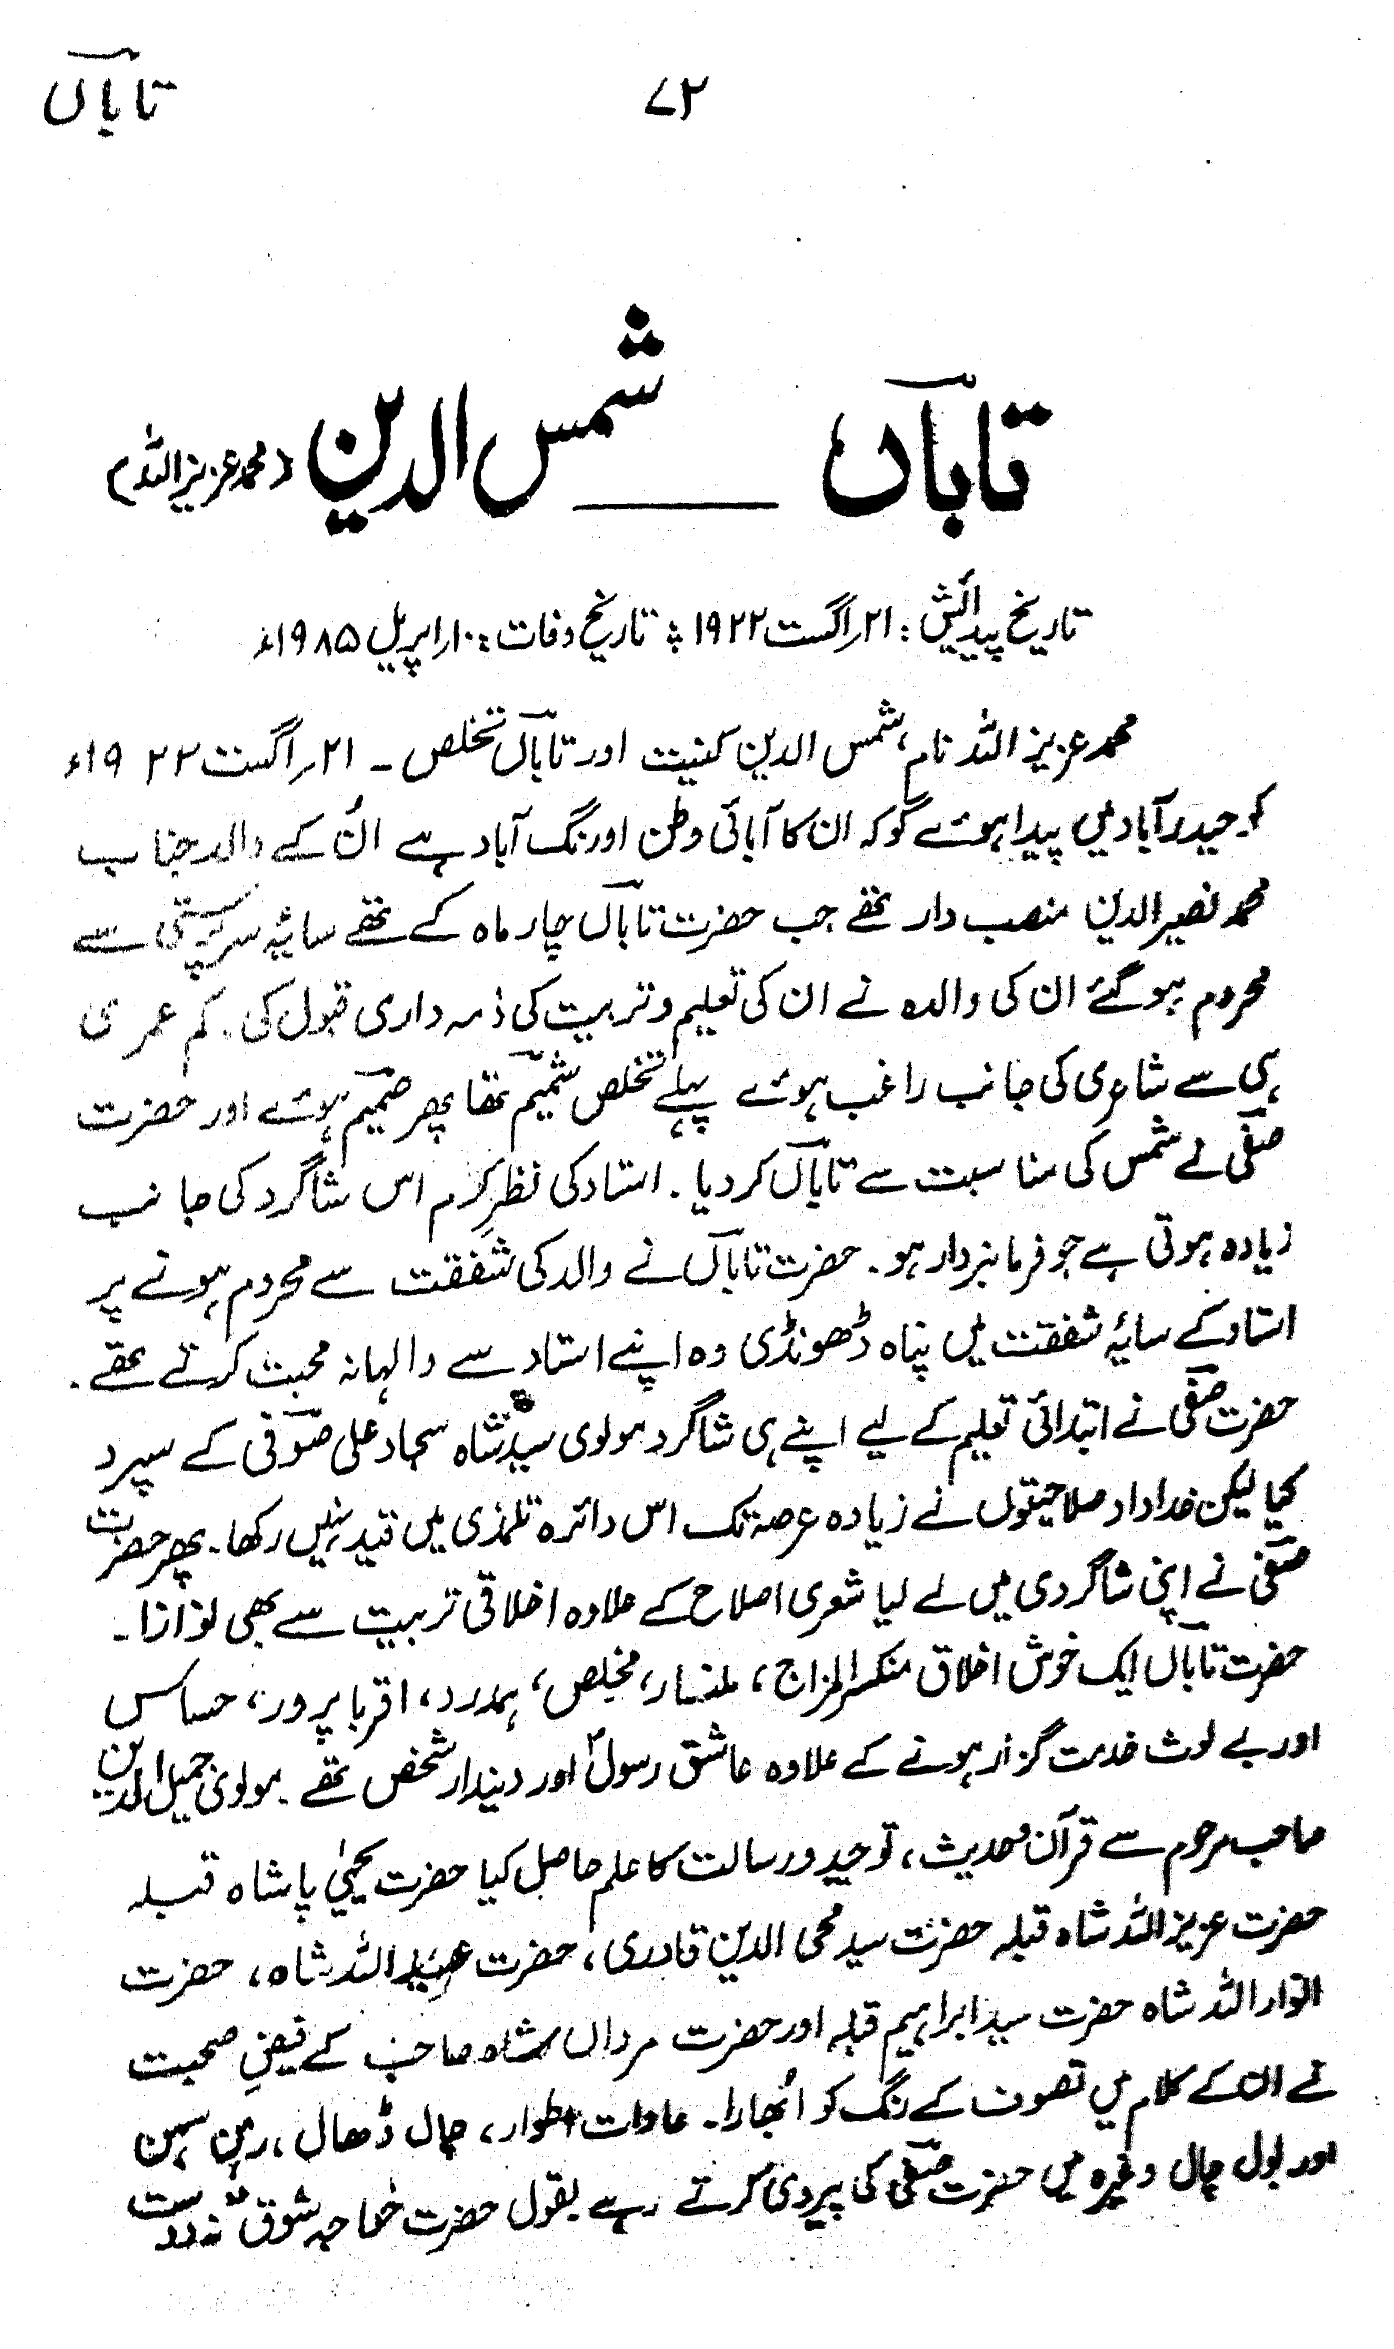 تاباںؔ
۷۲
تاباںؔ ـــــ شمس الدین (محمد عزیز اللہ)
تاریخ پیدائش: ۲۱؍اگست ۱۹۲۲ ؛ تاریخ وفات: ۱۰؍اپریل ۱۹۸۵ء
محمد عزیز اللہ نام، شمس الدین کنیت اور تاباںؔ تخلص ۔ ۲۱؍اگست ۱۹۲۲ء
کو حیدرآباد میں پیدا ہوئے گو کہ ان کا آبائی وطن اورنگ آباد ہے اُن کے والد جناب
محمد نصیر الدین منصب دار تھے جب حضرت تاباںؔ چار ماہ کے تھے سایۂ سرپرستی سے
محروم ہوگئے ان کی والدہ نے ان کی تعلیم و تربیت کی ذمہ داری قبول کی۔ کم عمری
ہی سے شاعری کی جانب راغب ہوئے پہلے تخلص شمیمؔ تھا پھر ضمیمؔ ہوئے اور حضرت
صفیؔ نے شمس کی مناسبت سے تاباںؔ کردیا۔ استاد کی نظرِ کرم اس شاگرد کی جانب
زیادہ ہوتی ہے جو فرمانبردار ہو۔ حضرت تاباںؔ نے والد کی شفقت سے محروم ہونے پر
استاد کے سایۂ شفقت میں پناہ ڈھونڈی وہ اپنے استاد سے والہانہ محبت کرتے تھے۔
حضرت صفیؔ نے ابتدائی تعلیم کے لیے اپنے ہی شاگرد مولوی سید شاہ سجاد علی صوفیؔ کے سپرد
کیا لیکن خداداد صلاحیتوں نے زیادہ عرصہ تک اس دائرہ تلمذی میں قید نہیں رکھا۔ پھر حضرت
صفیؔ نے اپنی شاگردی میں لے لیا شعری اصلاح کے علاوہ اخلاقی تربیت سے بھی نوازا۔
حضرت تاباںؔ ایک خوش اخلاق منکسر المزاج، ملنسار، مخلص، ہمدرد، اقربا پرور، حساس
اور بے لوث خدمت گزار ہونے کے علاوہ عاشق رسولؐ اور دیندار شخص تھے۔ مولوی جمیل الدین
صاحب مرحوم سے قرآن و حدیث، توحید و رسالت کا علم حاصل کیا حضرت یحییٰ پاشاہ قبلہ
حضرت عزیز اللہ شاہ قبلہ حضرت سید محی الدین قادری، حضرت عبید اللہ شاہ، حضرت
انوار اللہ شاہ حضرت سید ابراہیم قبلہ اور حضرت مرداں شاہ صاحب کے فیضِ صحبت
نے ان کے کلام میں تصوف کے رنگ کو اُبھارا۔ عادات اطوار، چال ڈھال، رہن سہن
اور بول چال وغیرہ میں حضرت صفیؔ کی پیروی کرتے رہے بقول حضرت خواجہ شوقؔ